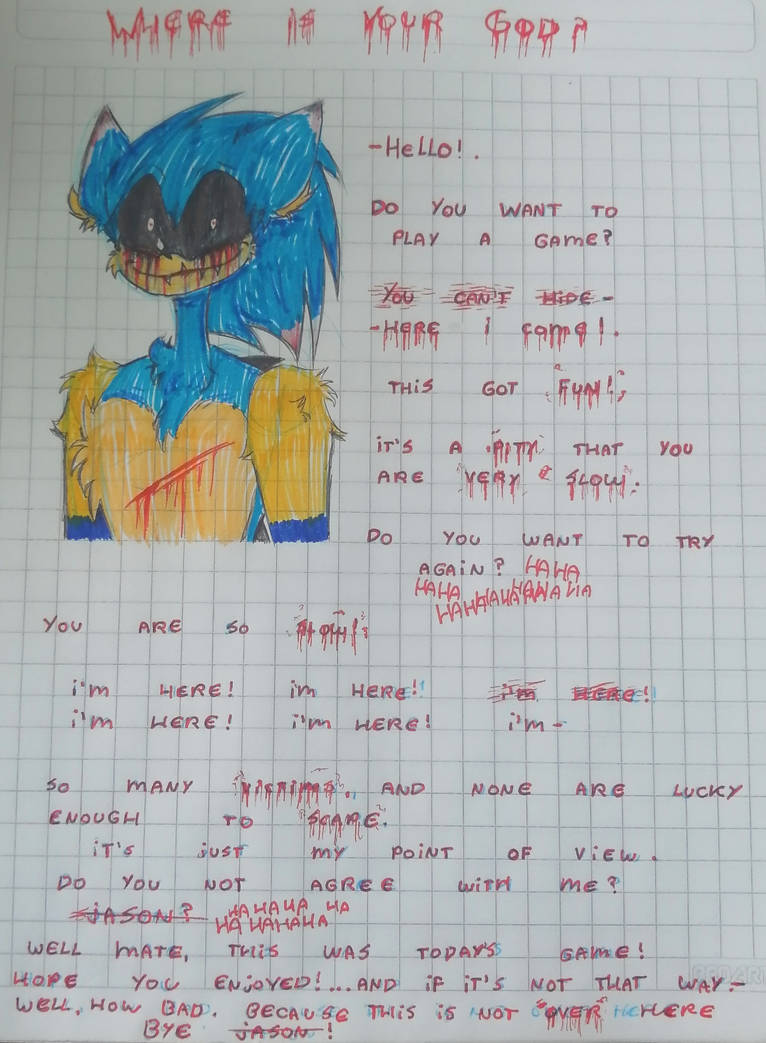 WHERE IS YOUR GOD?
-HELLO!.
DO YOU WANT TO
PLAY A GAME?
YOU CAN'T HIDE-
-HERE I COME!.
THIS GOT "FUN!",
iT'S A "PITY" THAT YOU
ARE "VERY SLOW".
DO YOU WANT TO TRY
AGAiN? HAHA
HAHA
HAHAHAHAHAHA
YOU ARE SO "SLOW!"
i'm HERE! im HERE! i'm HERE!
i'm HERE! i'm HERE! i'm-
SO MANY "VICTIMS". AND NONE ARE LUCKY
ENOUGH TO "SCAPE".
iT'S jUST MY POiNT OF ViEW.
DO YOU NOT AGREE WiTH ME?
jASON? HAHAHA HA
HA HAHAHA
WELL MATE, THiS WAS TODAYS GAME!
HOPE YOU ENjOYED!...AND iF iT'S NOT THAT WAY-
WELL, HOW BAD. BECAUSE THiS iS NOT "OVER" HERE
BYE jASON!